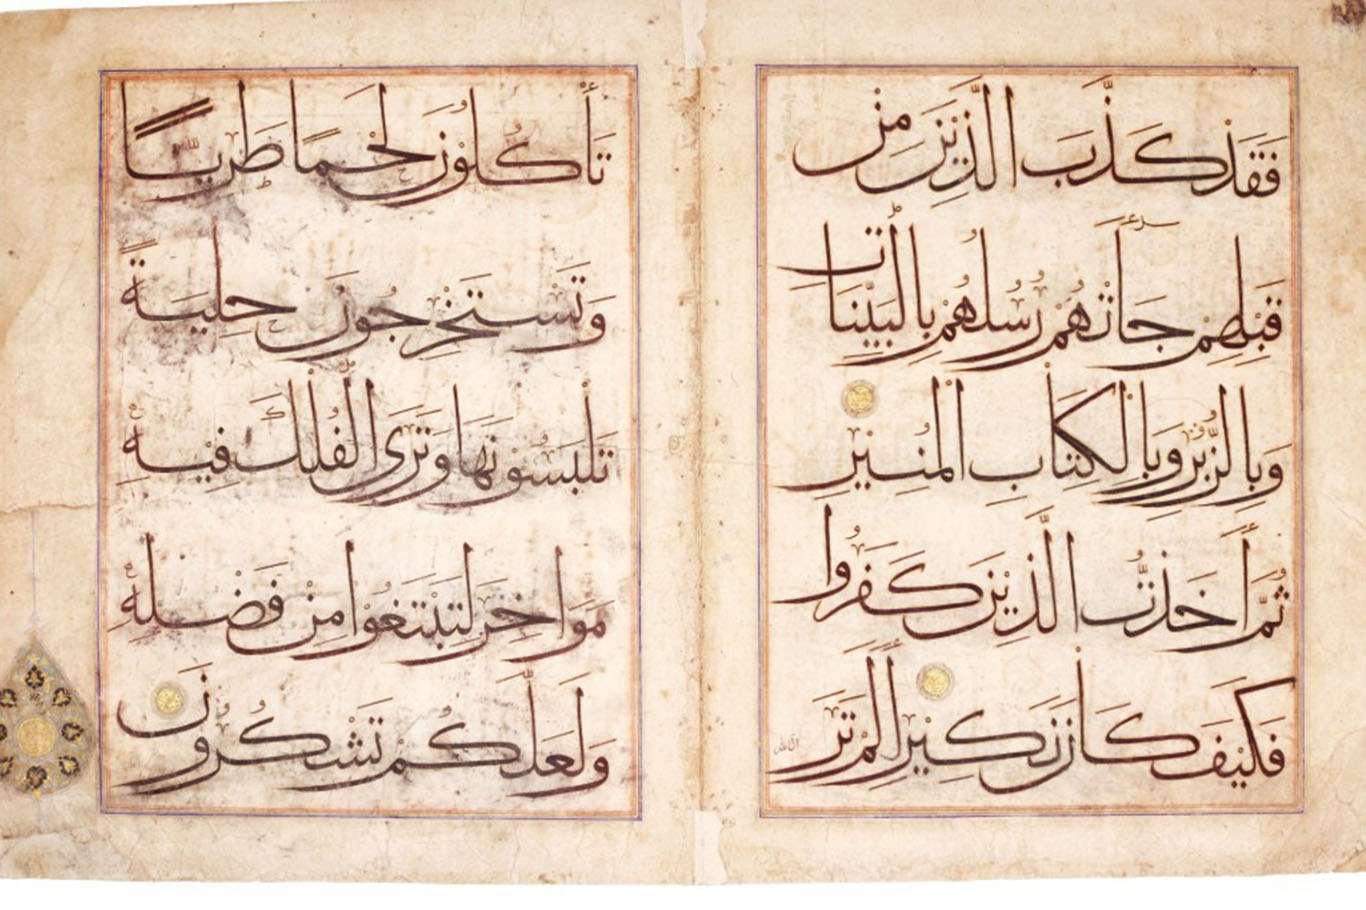 فَقَدْ كَذَّبَ الَّذِيْنَ مِنْ
قَبْلِهِمْ جَاتْهُمْ رُسُلُهُمْ بِالْبَيِّنَاتِ
وَبِالزُّبُرِ وَبِالْكِتَابِ الْمُنِيْرِ
ثُمَّ أَخَذْتُ الَّذِيْنَ كَفَرُوا
فَكَيْفَ كَانَ نَكِيْرِ أَلَمْ تَرَ
تَأْكُلُوْنَ لَحْمًا طَرِيًّا
وَتَسْتَخْرِجُوْنَ حِلْيَةً
تَلْبَسُوْنَهَا وَتَرَى الْفُلْكَ فِيْهِ
مَوَاخِرَ لِتَبْتَغُوْا مِنْ فَضْلِهِ
وَلَعَلَّكُمْ تَشْكُرُوْنَ